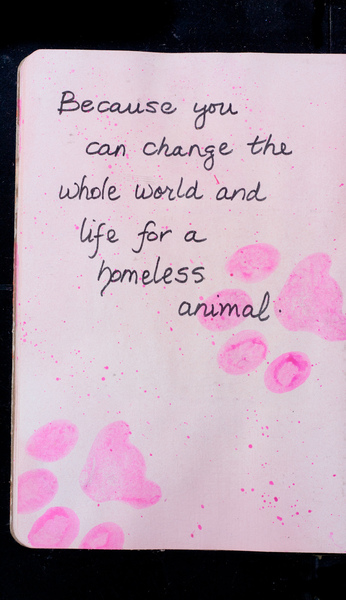 Because you
can change the
whole world and
life for a
homeless
animal.